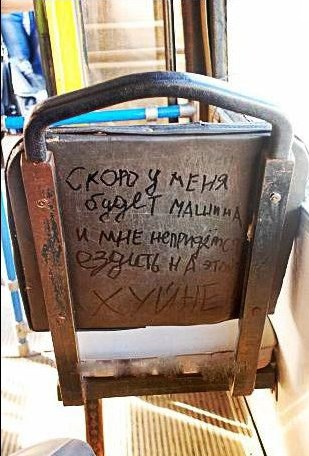 Скоро у меня
будет машина
и мне непридётся
оздить на этой
хуйне